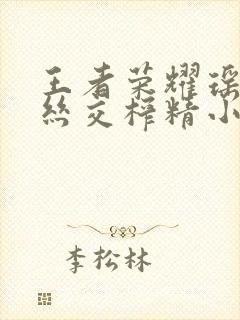 王者荣耀瑶
丝交榨精小
李松林